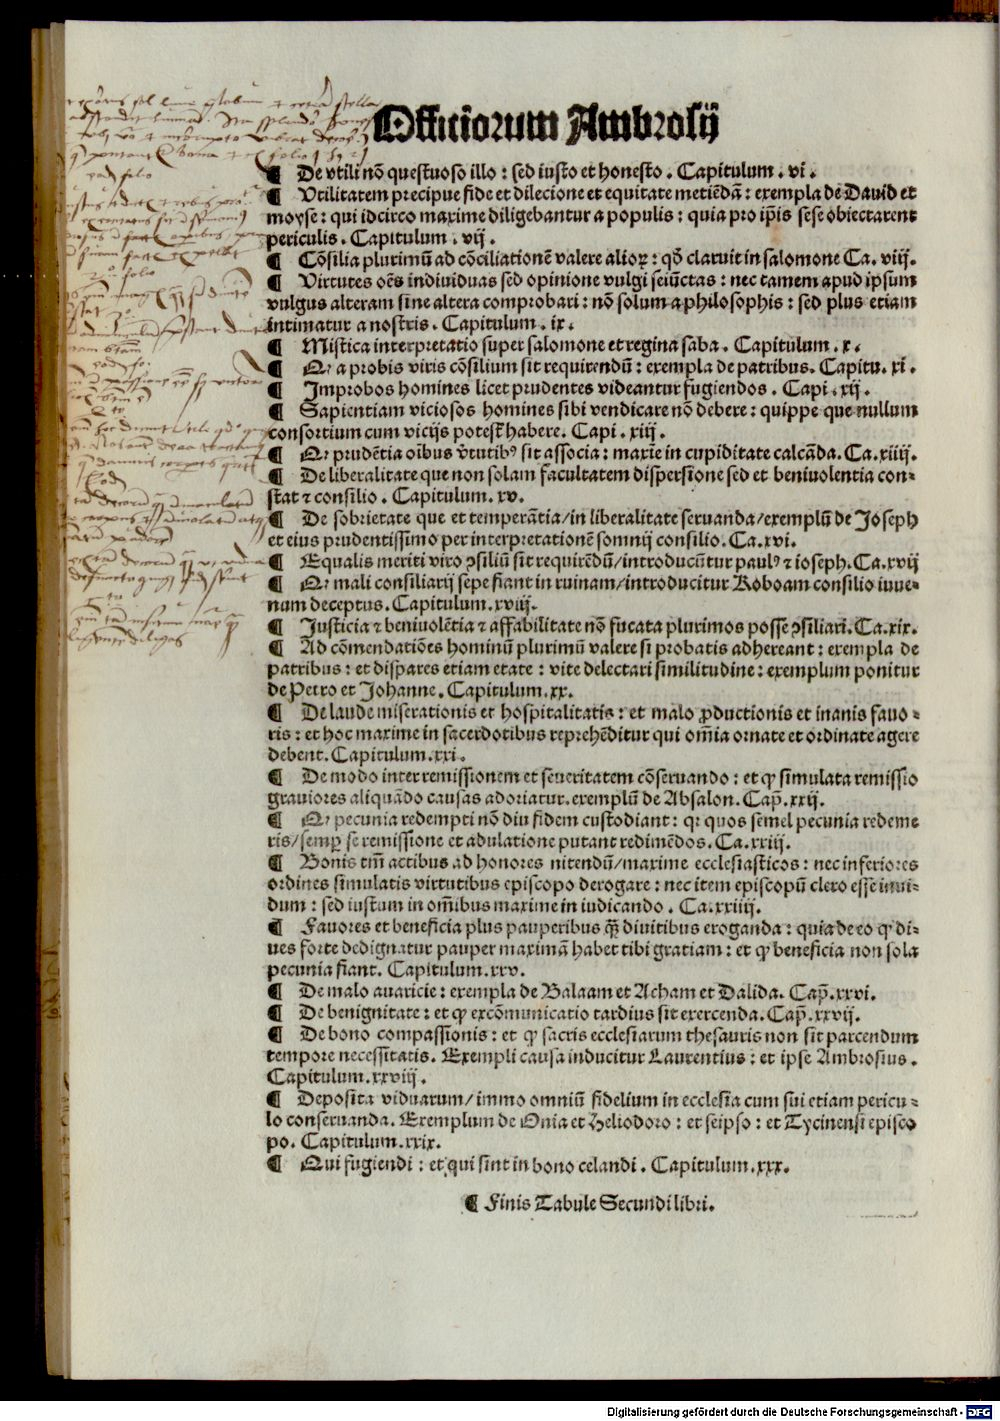 Officiorum Ambrosij
¶ De vtili nō questuoso illo : sed iusto et honesto . Capitulum . vi .
¶ Vtilitatem precipue fide et dilecione et equitate metiēdā : exempla de Dauid et
moyse : qui idcirco maxime diligebantur a populis : quia pro ip̄is sese obiectarent
periculis . Capitulum . vij .
¶ Cōsilia plurimū ad cōciliationē valere alioꝝ : qđ claruit in salomone Ca. viij.
¶ Virtutes oēs indiuiduas sed opinione vulgi seiūctas : nec tamen apud ipsum
vulgus alteram sine altera comprobari : nō solum a philosophis : sed plus etiam
intimatur a nostris . Capitulum . ix .
¶ Mistica interpretatio super salomone et regina saba . Capitulum . x .
¶ Qꝛ a probis viris cōsilium sit requirendū : exempla de patribus. Capitu. xi .
¶ Improbos homines licet prudentes videantur fugiendos . Capi . xij .
¶ Sapientiam viciosos homines sibi vendicare nō debere : quippe que nullum
consortium cum vicijs potest habere. Capi . xiij .
¶ Qꝛ prudētia oibus v̄tutibꝰ sit associa : maxie in cupiditate calcāda. Ca. xiiij .
¶ De liberalitate que non solam facultatem dispersione sed et beniuolentia con-
stat ⁊ consilio . Capitulum. xv.
¶ De sobrietate que et temperātia/in liberalitate seruanda/exemplū de Joseph
et eius prudentissimo per interpretationē somnij consilio. Ca.xvi.
¶ Equalis meriti viro ꝯsiliū sit requirēdū/introducūtur paulꝰ ⁊ ioseph. Ca.xvij
¶ Qꝛ mali consiliarij sepe fiant in ruinam/introducitur Roboam consilio iuue-
num deceptus. Capitulum.xviij.
¶ Justicia ⁊ beniuolētia ⁊ affabilitate nō fucata plurimos posse ꝯsiliari. Ca.xix.
¶ Ad cōmendatiōes hominū plurimū valere si probatis adhereant : exempla de
patribus : et dispares etiam etate : vite delectari similitudine : exemplum ponitur
de Petro et Johanne . Capitulum. xx.
¶ De laude miserationis et hospitalitatis : et malo ꝓductionis et inanis fauo-
ris : et hoc maxime in sacerdotibus reprehēditur qui om̄ia ornate et ordinate agere
debent. Capitulum.xxi.
¶ De modo inter remissionem et seueritatem cōseruando : et ꝙ simulata remissio
grauiores aliquādo causas adoriatur. exemplū de Absalon. Cap̄. xxij.
¶ Qꝛ pecunia redempti nō diu fidem custodiant : qꝛ quos semel pecunia redeme
ris/semꝑ se remissione et adulatione putant redimēdos. Ca. xxiij.
¶ Bonis tm̄ actibus ad honores nitendū/maxime ecclesiasticos : nec inferiores
ordines simulatis virtutibus episcopo derogare : nec item episcopū clero esse inui-
dum : sed iustum in om̄ibus maxime in iudicando . Ca.xxiiij.
¶ Fauores et beneficia plus pauperibus qꝫ̄ diuitibus eroganda : quia de eo ꝙ di-
ues forte dedignatur pauper maximā habet tibi gratiam : et ꝙ beneficia non sola
pecunia fiant. Capitulum.xxv.
¶ De malo auaricie : exempla de Balaam et Acham et Dalida. Cap̄.xxvi.
¶ De benignitate : et ꝙ excōmunicatio tardius sit exercenda. Cap̄. xxvij.
¶ De bono compassionis : et ꝙ sacris ecclesiarum thesauris non sit parcendum
tempore necessitatis . Exempli causa inducitur Laurentius : et ipse Ambrosius .
Capitulum. xxviij .
¶ Deposita viduarum/immo omniū fidelium in ecclesia cum sui etiam pericu-
lo conseruanda. Exemplum de Onia et Heliodoro : et seipso : et Tycinensi episco
po. Capitulum. xxix.
¶ Qui fugiendi : et qui sint in bono celandi . Capitulum. xxx.
¶ Finis Tabule Secundi libri.
Digitalisierung gefördert durch die Deutsche Forschungsgemeinschaft - DFG